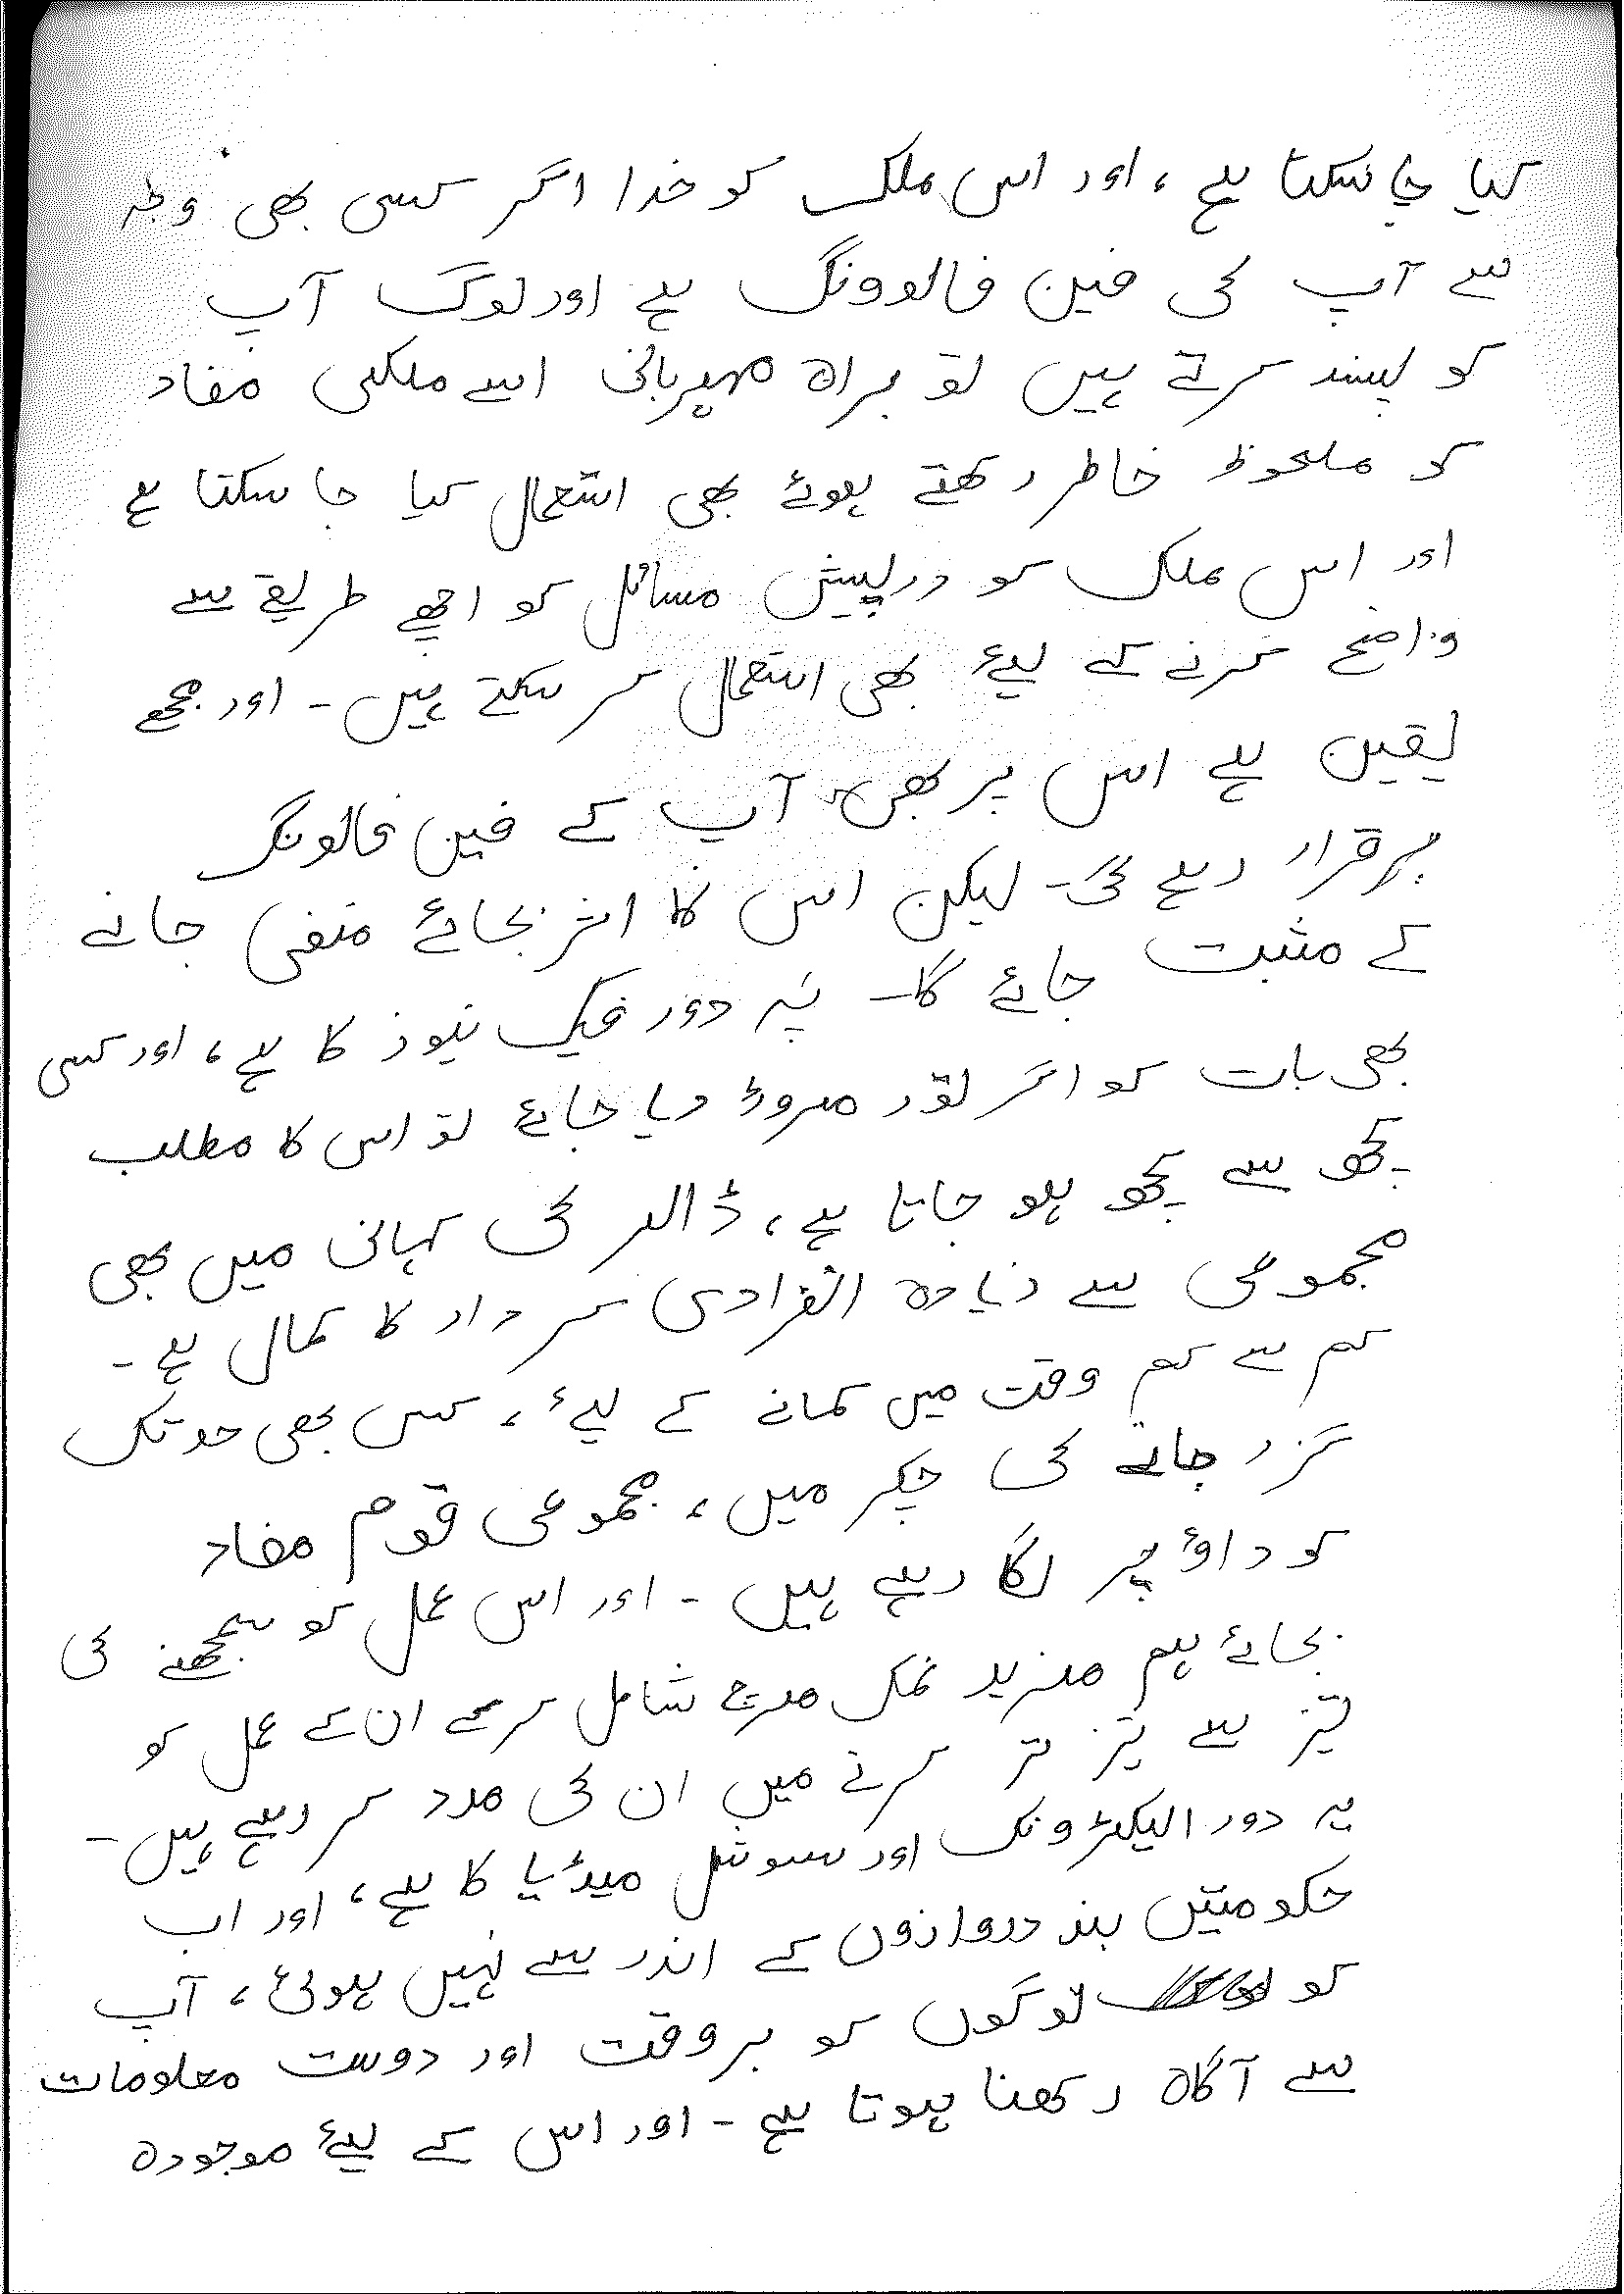 کیا جا سکتا ہے ، اور اس ملک کو خدا اگر کسی بھی وجہ
سے آپ کی فین فالوونگ ہے اور لوگ آپ
کو پسند کرتے ہیں تو براہ مہربانی اسے ملکی مفاد
کو ملحوظ خاطر رکھتے ہوئے بھی استعمال کیا جا سکتا ہے
اور اس ملک کو درپیش مسائل کو اچھے طریقے سے
واضح کرنے کے لیئے بھی استعمال کر سکتے ہیں ۔ اور مجھے
یقین ہے اس پر بھی آپ کے فین فالونگ
برقرار رہے گی ۔ لیکن اس کا اثر بجائے منفی جانے
کے مثبت جائے گا ۔ یہ دور فیک نیوز کا ہے ، اور کسی
بھی بات کو اگر توڑ مروڑ دیا جائے تو اس کا مطلب
کچھ سے کچھ ہو جاتا ہے ، ڈالر کی کہانی میں بھی
مجموعی سے زیادہ انفرادی کردار کا کمال ہے ۔
کم سے کم وقت میں کمانے کے لیئے ، کسی بھی حد تک
گزر جانے کی چکر میں ، مجموعی قوم مفاد
کو داؤ پر لگا رہے ہیں ۔ اور اس عمل کو سمجھنے کی
بجائے ہم مزید نمک مرچ شامل کرکے ان کے عمل کو
تیز سے تیز تر کرنے میں ان کی مدد کر رہے ہیں ۔
یہ دور الیکٹرونک اور سوشل میڈیا کا ہے ، اور اب
حکومتیں بند دروازوں کے اندر سے نہیں ہوتی ، آپ
کو لوگوں کو بر وقت اور دوست معلومات
سے آگاہ رکھنا ہوتا ہے ۔ اور اس کے لیئے موجودہ